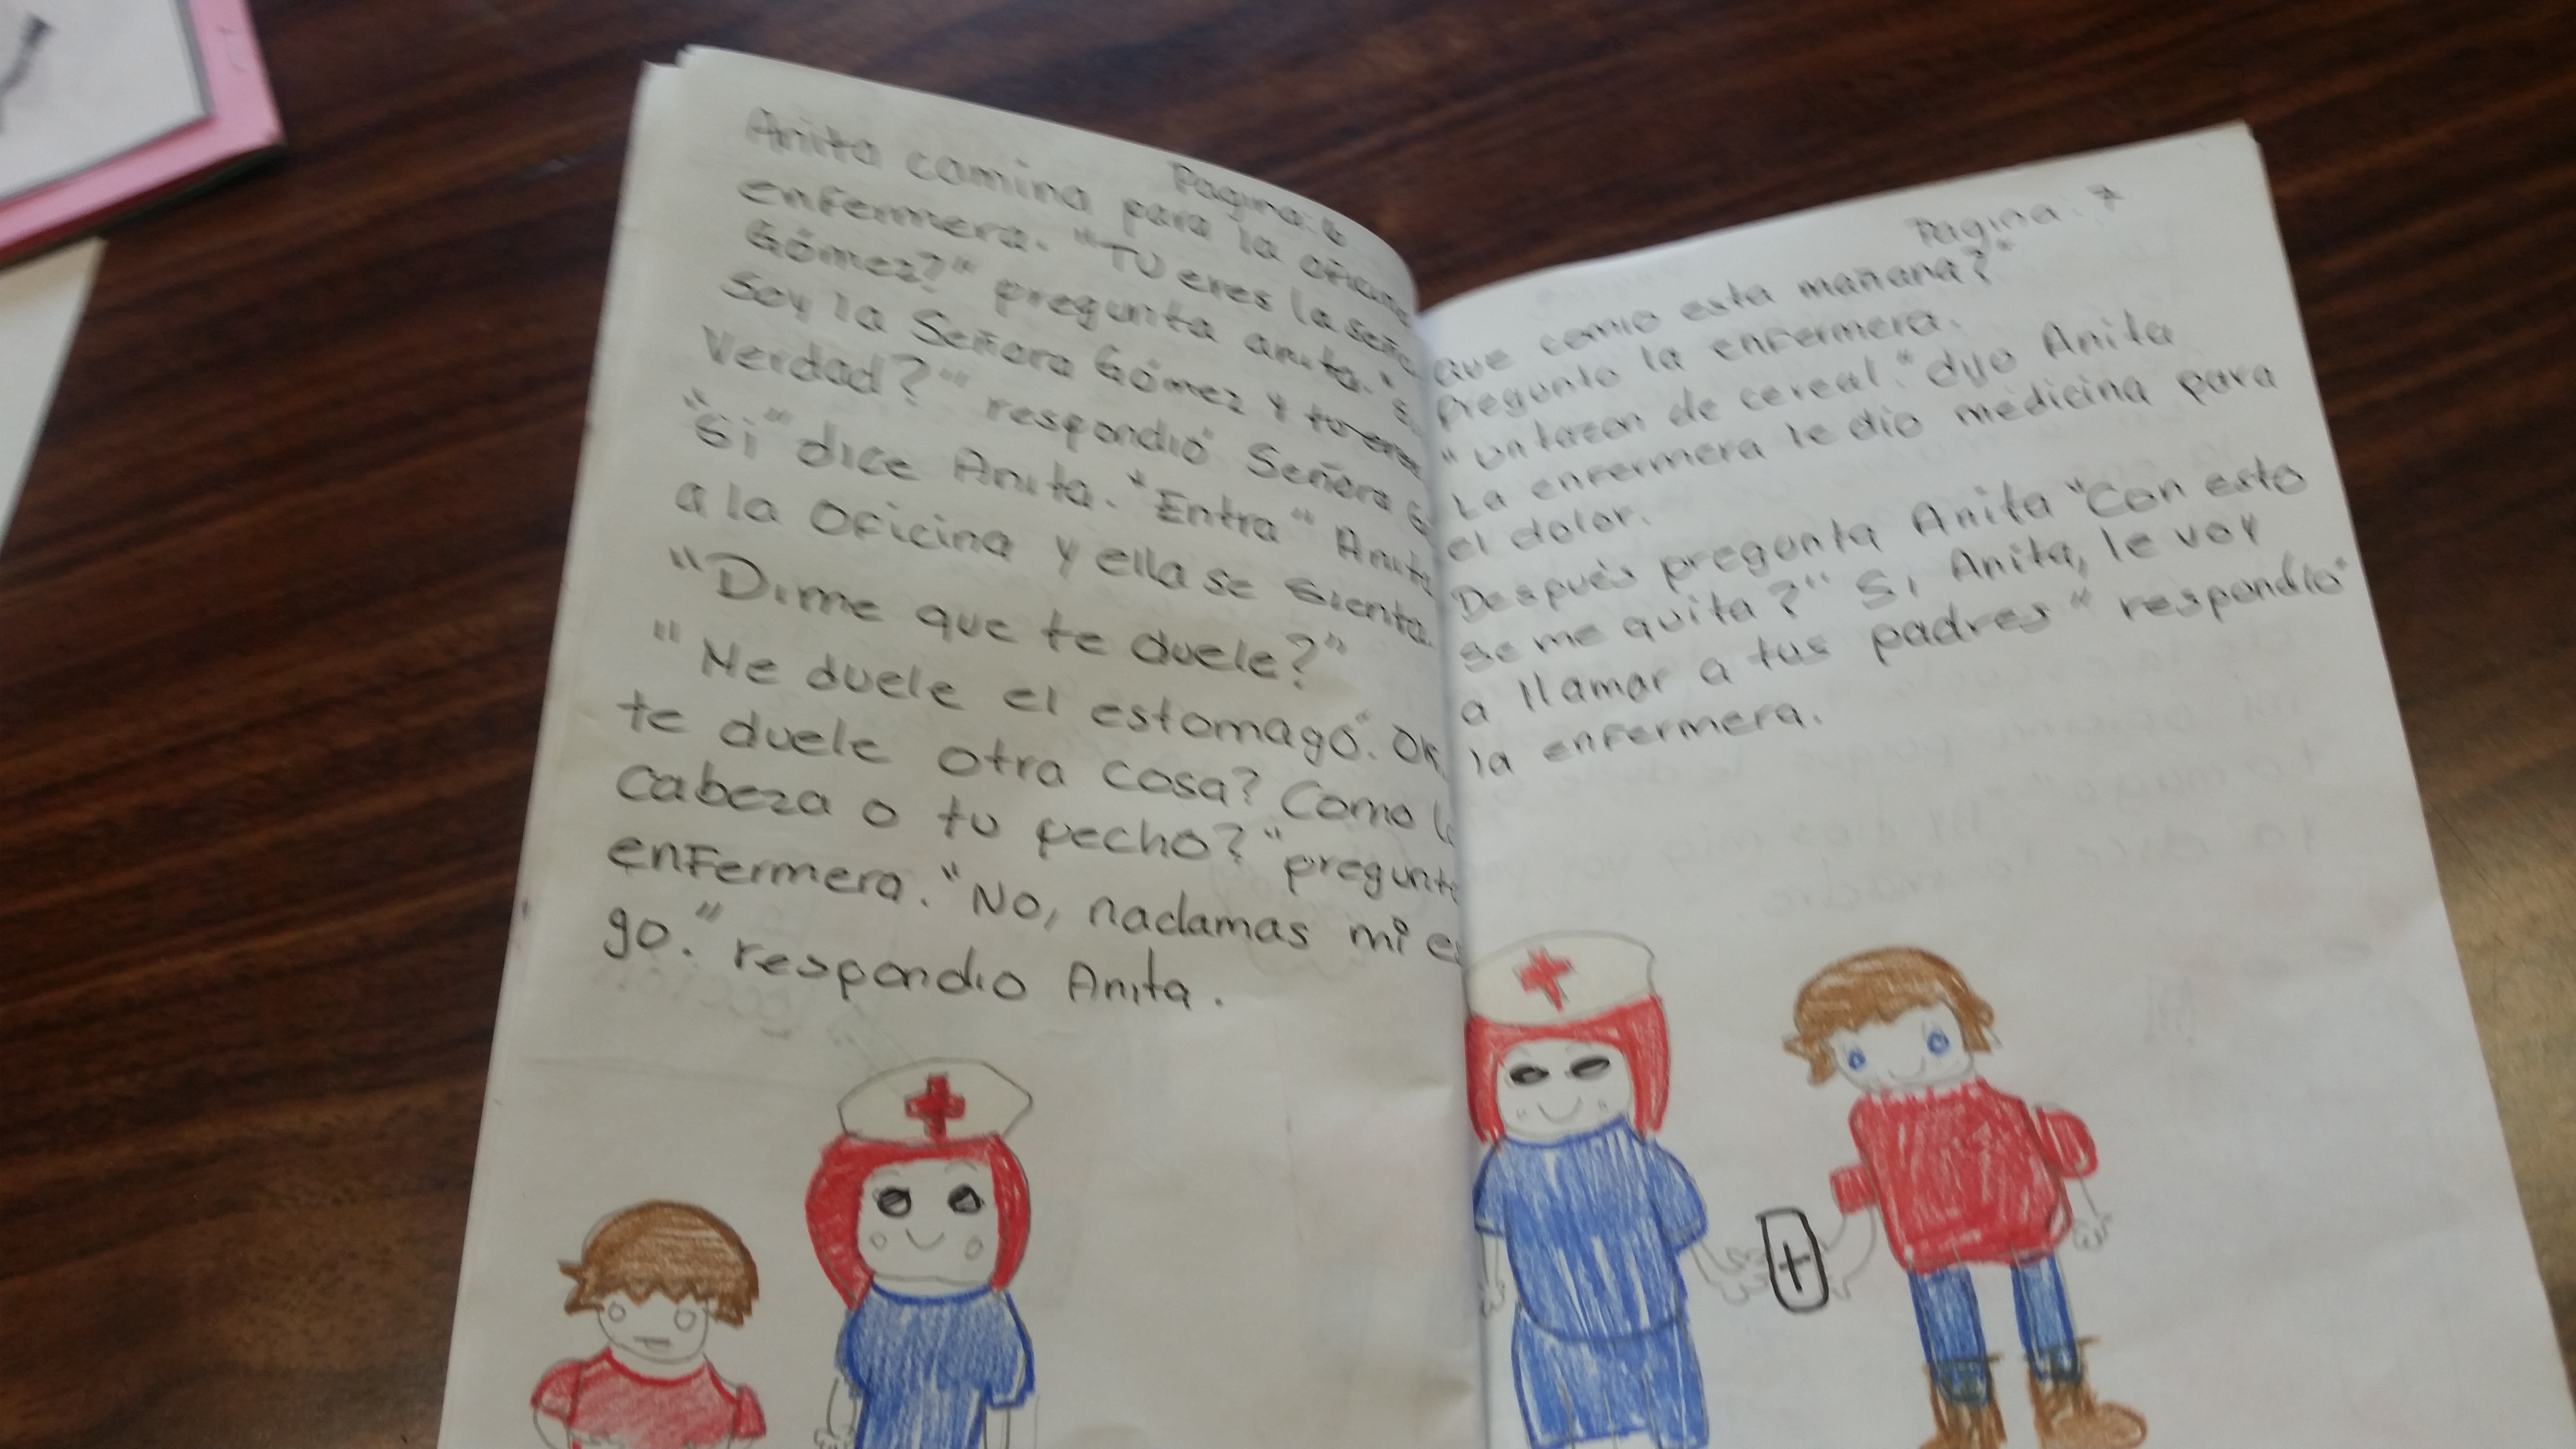 Pagina: 6
Anita camina para la oficina
enfermera. "Tu eres la seño
Gómez?" pregunta anita. "
Soy la Señora Gómez y tu eres
Verdad?" respondió Señora G
"Si" dice Anita. "Entra" Anita
a la oficina y ella se sienta.
"Dime que te duele?"
"Me duele el estomago". Ok,
te duele otra cosa? Como l
cabeza o tu pecho?" pregunt
enfermera. "No, nadamas mi es
go." respondio Anita.
Pagina: 7
que comio esta mañana?"
Pregunto la enfermera.
"Un tazon de cereal." dijo Anita
La enfermera le dio medicina para
el dolor.
Después pregunta Anita "Con esto
se me quita?" Si Anita, le voy
a llamar a tus padres" respondio
la enfermera.